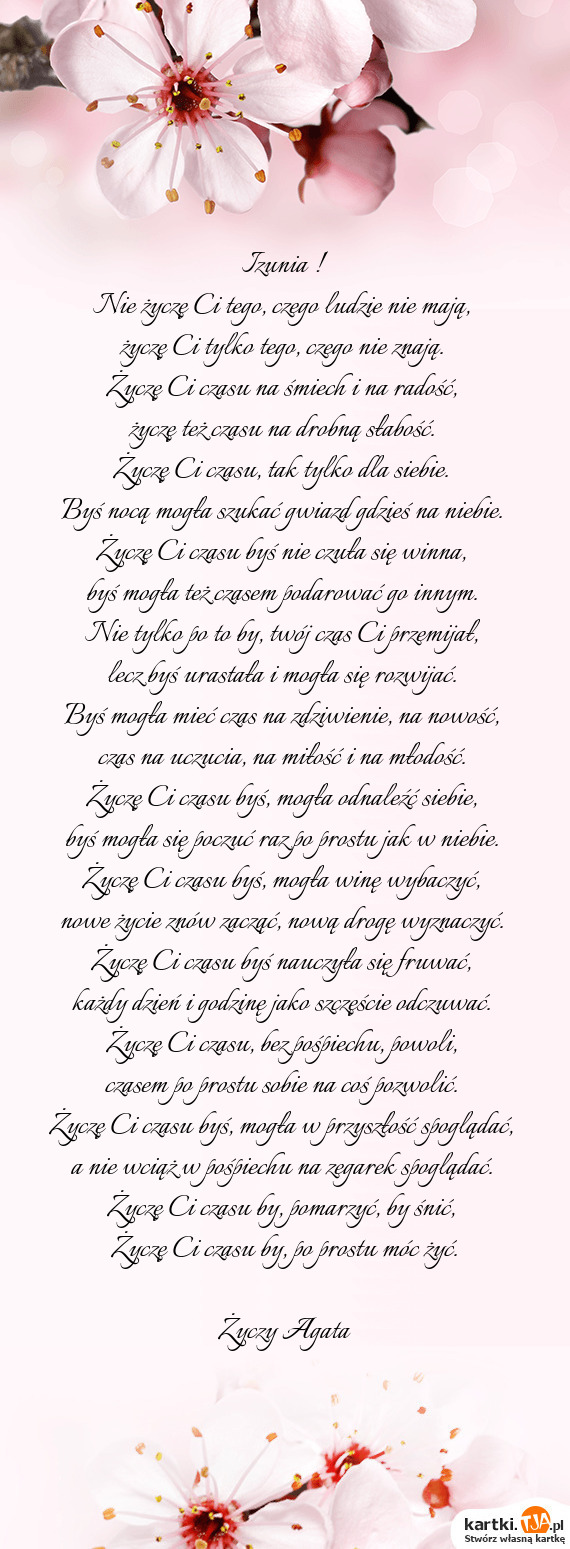 Izunia !
Nie życzę Ci tego, czego ludzie nie mają,
życzę Ci tylko tego, czego nie znają.
Życzę Ci czasu na śmiech i na radość,
życzę też czasu na drobną słabość.
Życzę Ci czasu, tak tylko dla siebie.
Byś nocą mogła szukać gwiazd gdzieś na niebie.
Życzę Ci czasu byś nie czuła się winna,
byś mogła też czasem podarować go innym.
Nie tylko po to by, twój czas Ci przemijał,
lecz byś urastała i mogła się rozwijać.
Byś mogła mieć czas na zdziwienie, na nowość,
czas na uczucia, na miłość i na młodość.
Życzę Ci czasu byś, mogła odnaleźć siebie,
byś mogła się poczuć raz po prostu jak w niebie.
Życzę Ci czasu byś, mogła winę wybaczyć,
nowe życie znów zacząć, nową drogę wyznaczyć.
Życzę Ci czasu byś nauczyła się fruwać,
każdy dzień i godzinę jako szczęście odczuwać.
Życzę Ci czasu, bez pośpiechu, powoli,
czasem po prostu sobie na coś pozwolić.
Życzę Ci czasu byś, mogła w przyszłość spoglądać,
a nie wciąż w pośpiechu na zegarek spoglądać.
Życzę Ci czasu by, pomarzyć, by śnić,
Życzę Ci czasu by, po prostu móc żyć.
Życzy Agata
kartki.TJA.pl
Stwórz własną kartkę